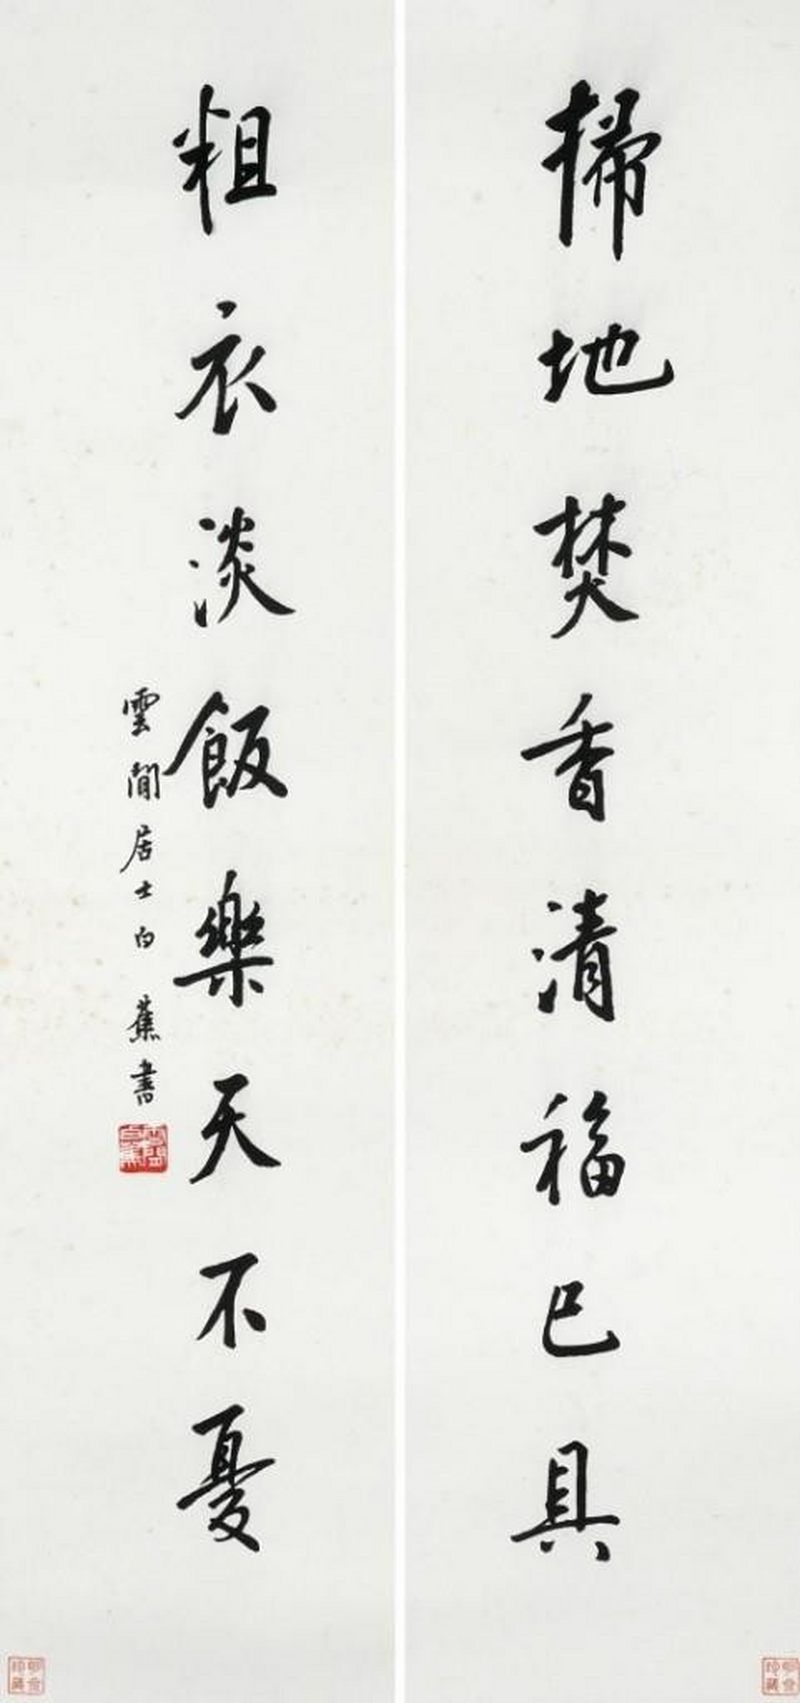 掃地焚香清福已具
粗衣淡飯樂天不憂
雲間居士白蕉書